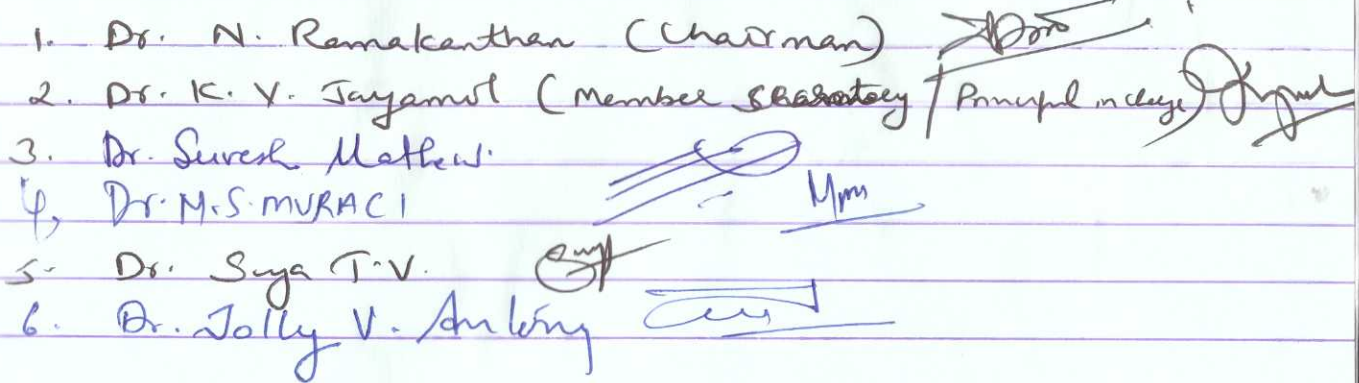 1. Dr. N. Ramakanthan (Chairman)
2. Dr. K. V. Jayamol (Member Secretary / Principal in charge)
3. Dr. Suresh Mathew.
4, Dr. M.S. MURALI
5- Dr. Suya T.V.
6. Dr. Jolly V. Antony